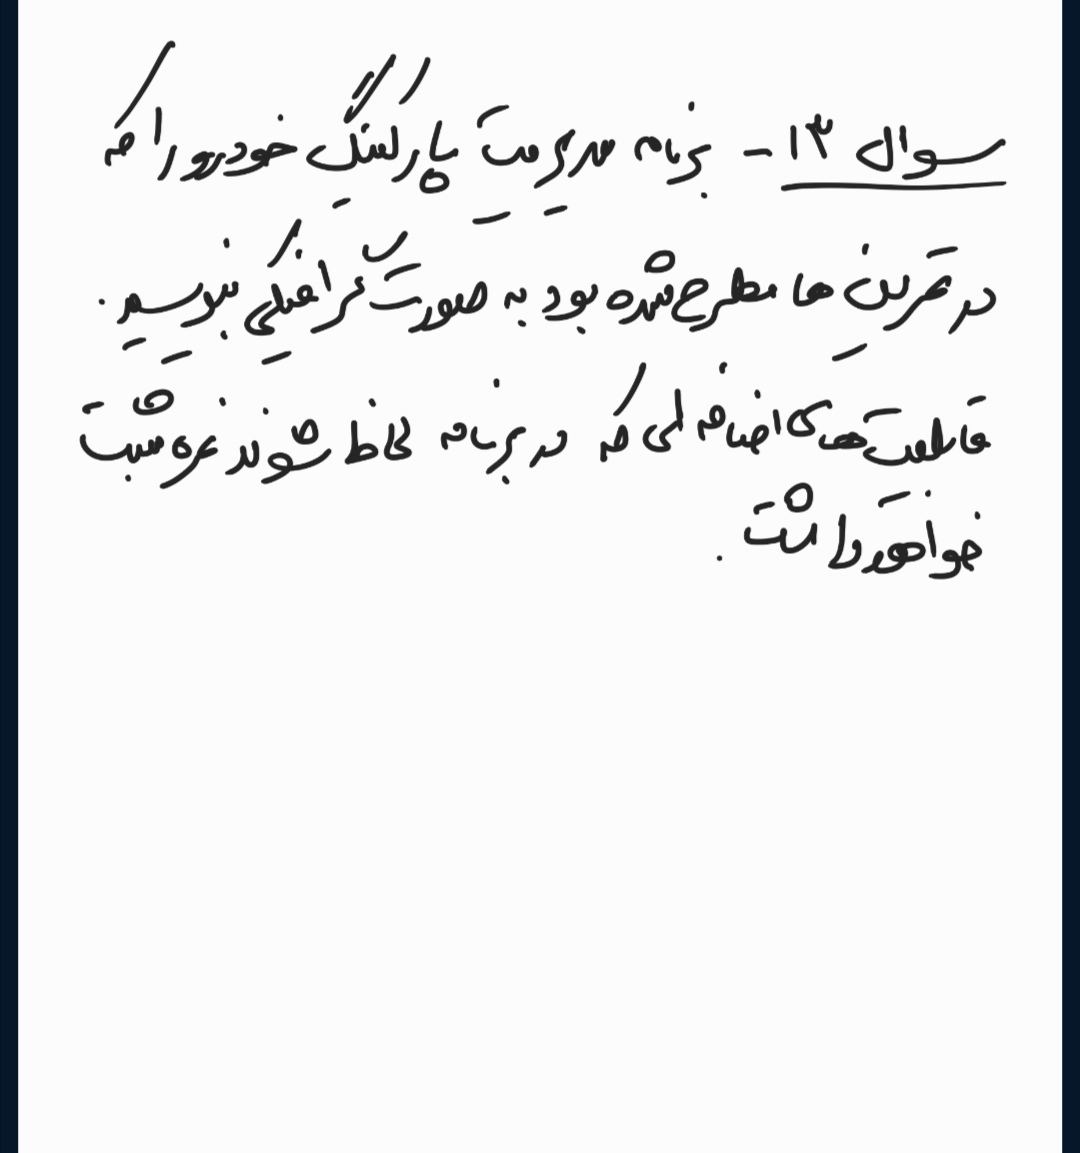 سوال ۱۳ - برنامه مدیریت پارکینگ خودرو را که
در تمرین ها مطرح شده بود به صورت گرافیکی بنویسید.
قابلیت های اضافه ای که در برنامه لحاظ شوند نمره مثبت
خواهند داشت.